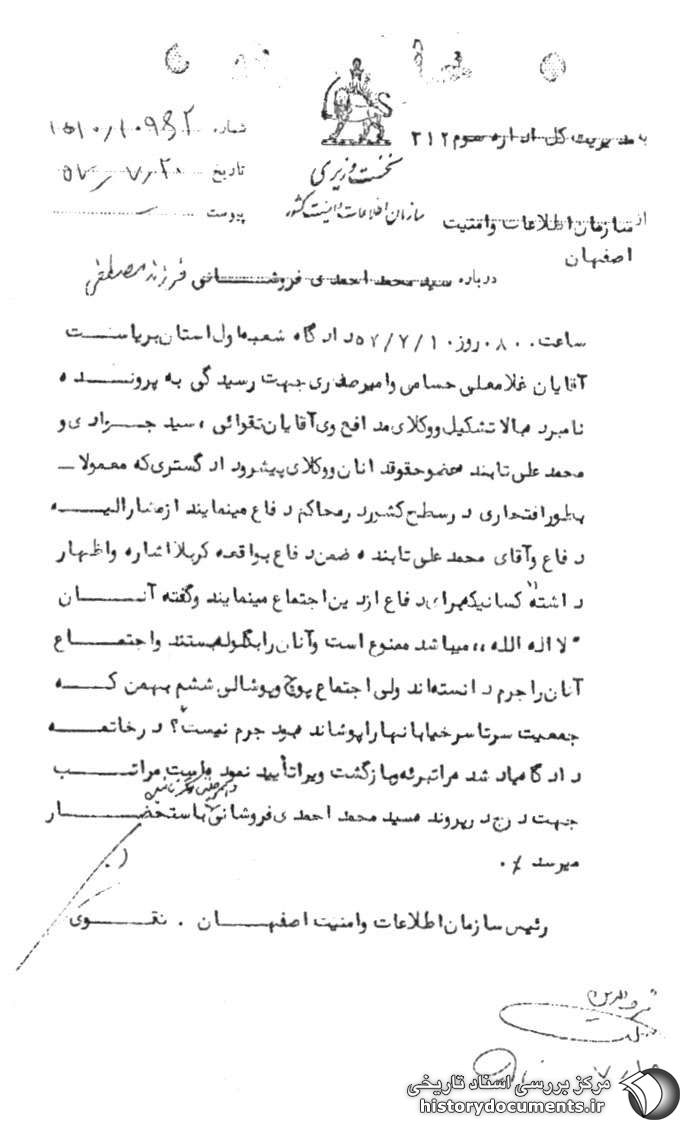 به مدیریت کل اداره سوم ۳۱۲
شماره
نخست وزیری
تاریخ ۵۷/۷/۲۰
سازمان اطلاعات و امنیت کشور
پیوست
از سازمان اطلاعات و امنیت
اصفهان
درباره سید محمد احمدی فروشانی فرزند مصطفی
ساعت ۰۸۰۰ روز ۵۷/۷/۱۰ دادگاه شعبه اول استان بریاست
آقایان غلامعلی حسامی وامیر صفدری جهت رسیدگی به پرونده
نامبرده بالا تشکیل ووکلای مدافع وی آقایان تقوائی ، سید جزاری و
محمد علی تابنده عضو حقوقدانان ووکلای پیشرو دادگستری که معمولا
بطور افتخاری در سطح کشور در محاکم دفاع مینمایند از مشارالیه
دفاع وآقای محمد علی تابنده ضمن دفاع بواقعه کربلا اشاره واظهار
داشته ,,کسانیکه برای دفاع از دین اجتماع مینمایند وگفته آنان
"لا اله الله ,, میباشد ممنوع است وآنان را بگلوله بستند واجتماع
آنان را جرم دانسته اند ولی اجتماع پوچ وپوشالی ششم بهمن که
جمعیت سرتاسر خیابانها را پوشانده بود جرم نیست؟ در خاتمه
دادگاه
جهت درج در پرونده سید محمد احمدی فروشانی باستحضار
میرسد ./
رئیس سازمان اطلاعات وامنیت اصفهان . تقوی
مرکز بررسی اسناد تاریخی
historydocuments.ir